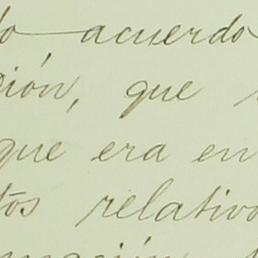 do acuerdo
ción, que
que era en
tos relativo
mación